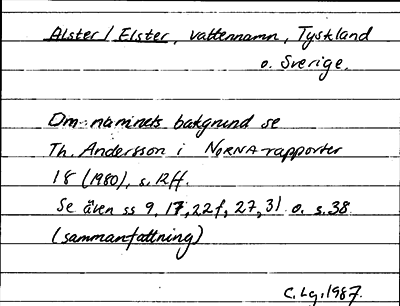 Alster / Elster, vattennamn, Tyskland
o. Sverige.
Om namnets bakgrund se
Th. Andersson i NORNA-rapporter
18 (1980), s. 12 ff.
Se även ss 9, 17, 22 f, 27, 31 o. s. 38
(sammanfattning)
C. Lg. 1987.